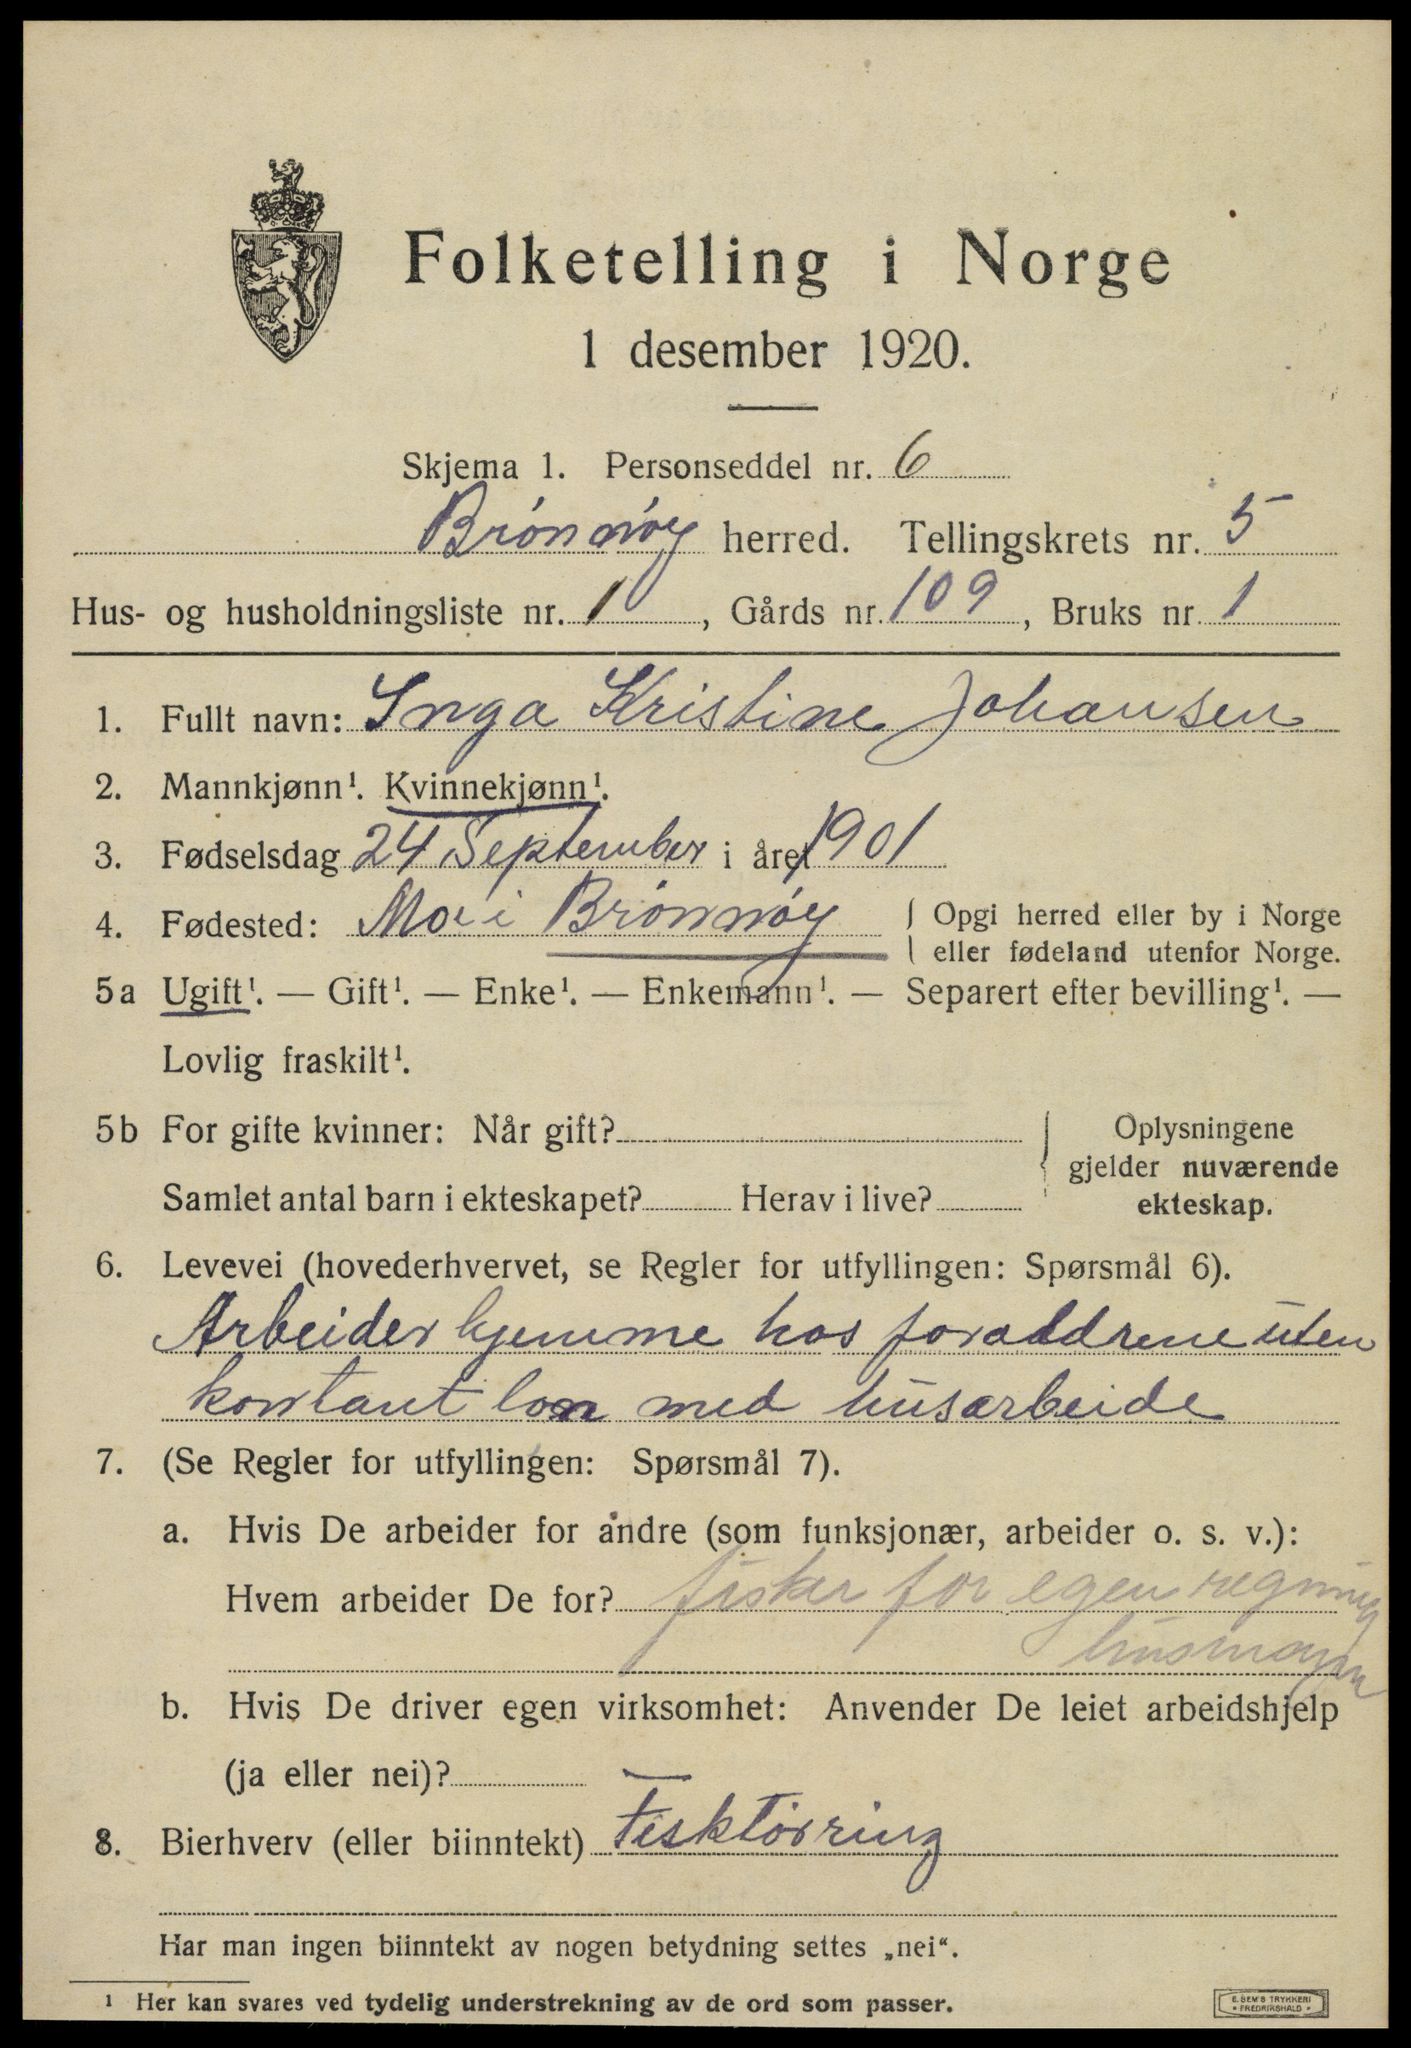 Folketelling i Norge
1 desember 1920.
Skjema 1. Personseddel nr. 6
Brónnóy herred. Tellingskrets nr. 5
Hus- og husholdningsliste nr. 1, Gårds nr. 109, Bruks nr 1
1. Fullt navn: Inga Kristine Johansen
2. Mannkjønn¹. Kvinnekjønn¹.
3. Fødselsdag 24 September i året 1901
4. Fødested: Mo i Brónnóy { Opgi herred eller by i Norge
eller fødeland utenfor Norge.
5a Ugift¹. — Gift¹. — Enke¹. — Enkemann¹. — Separert efter bevilling¹. —
Lovlig fraskilt¹.
5b For gifte kvinner: Når gift?
Samlet antal barn i ekteskapet? Herav i live?
Oplysningene
gjelder nuværende
ekteskap.
6. Levevei (hovederhvervet, se Regler for utfyllingen: Spørsmål 6).
Arbeider hjemme hos foraldrene uten
kontant lon med husarbeide
7. (Se Regler for utfyllingen: Spørsmål 7).
a. Hvis De arbeider for andre (som funksjonær, arbeider o. s. v.):
Hvem arbeider De for? fisker for egen regning
b. Hvis De driver egen virksomhet: Anvender De leiet arbeidshjelp
(ja eller nei)?
8. Bierhverv (eller biinntekt) Fisktórring
Har man ingen biinntekt av nogen betydning settes „nei“.
¹ Her kan svares ved tydelig understrekning av de ord som passer.
E. SEM'S TRYKKERI
* FREDRIKSHALD *